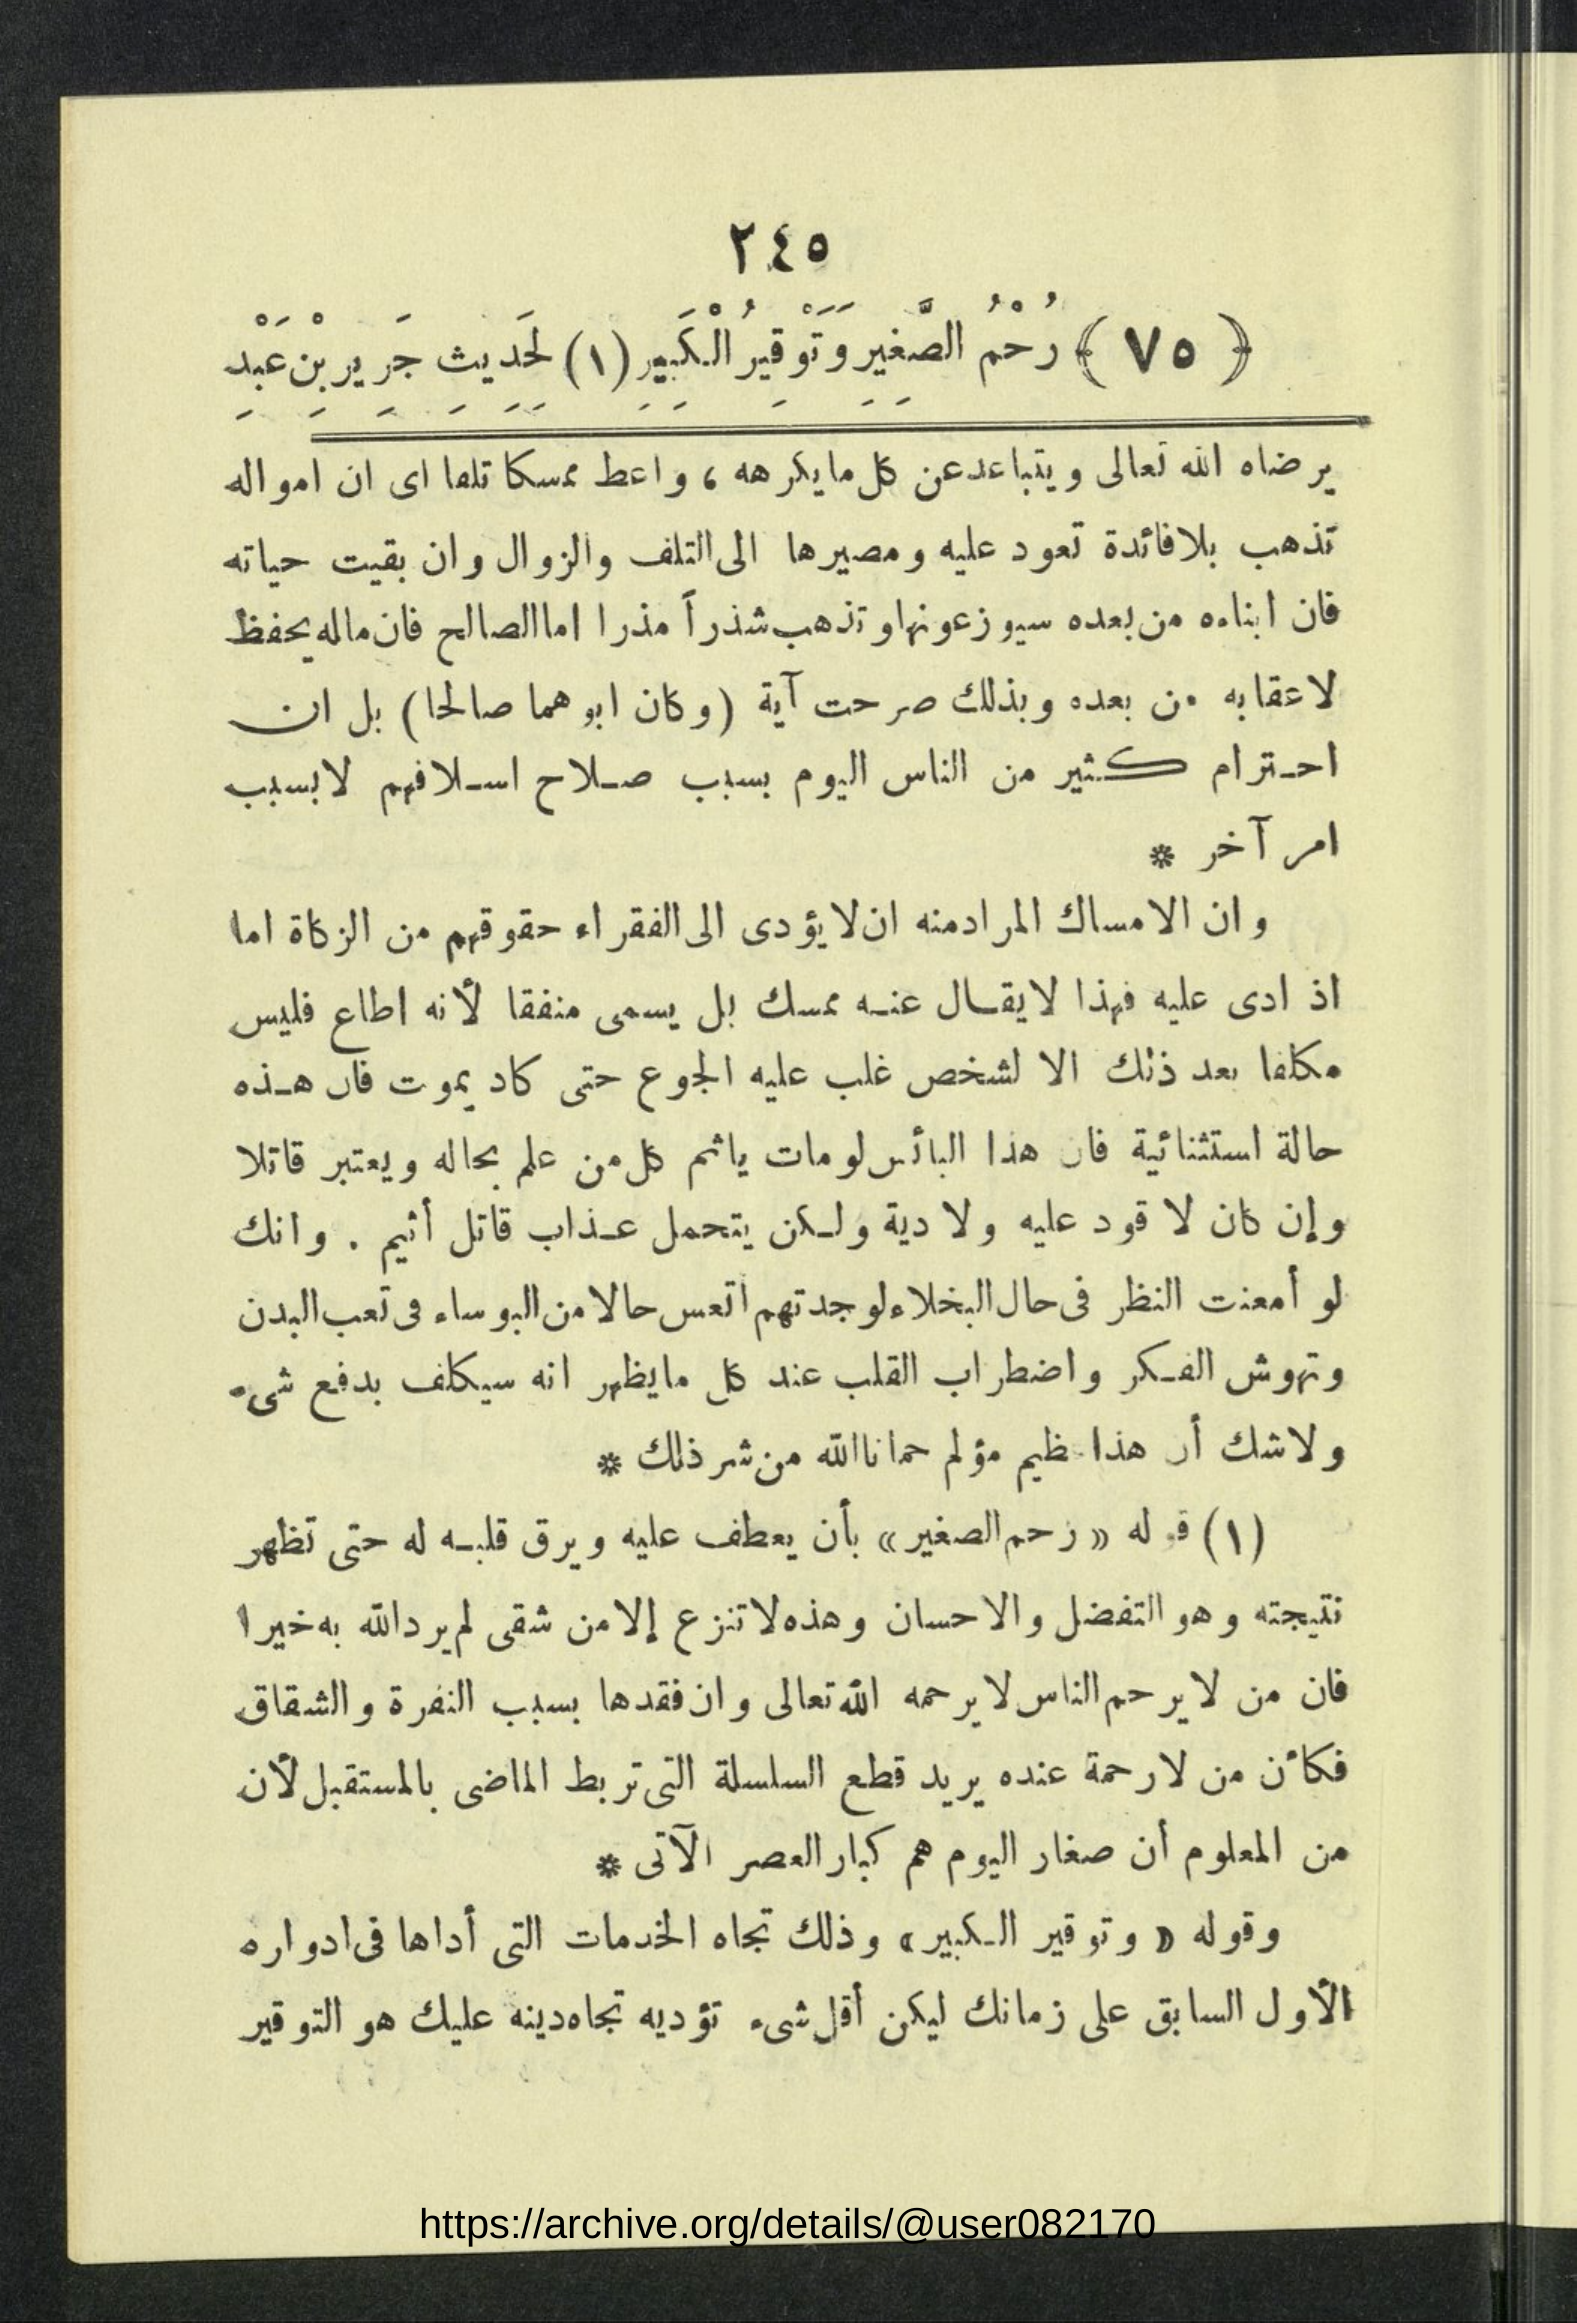 ٢٤٥
﴿ ٧٥ ﴾ رُحْمُ الصَّغِيرِ وَتَوْقِيرُ الْكَبِيرِ (١) لِحَدِيثِ جَرِيرِ بْنِ عَبْدِ
يرضاه الله تعالى ويتباعد عن كل ما يكرهه ، واعط ممسكا تلفا اى ان امواله
تذهب بلا فائدة تعود عليه ومصيرها الى التلف والزوال وان بقيت حياته
فان ابناءه من بعده سيوزعونها وتذهب شذراً مذرا اما الصالح فان ماله يحفظ
لاعقابه من بعده وبذلك صرحت آية (وكان ابوهما صالحا) بل ان
احترام كثير من الناس اليوم بسبب صلاح اسلافهم لا بسبب
امر آخر *
وان الامساك المراد منه ان لا يؤدى الى الفقراء حقوقهم من الزكاة اما
اذ ادى عليه فهذا لا يقال عنه ممسك بل يسمى منفقا لأنه اطاع فليس
مكلفا بعد ذلك الا لشخص غلب عليه الجوع حتى كاد يموت فان هذه
حالة استثنائية فان هذا البائس لو مات ياثم كل من علم بحاله ويعتبر قاتلا
وإن كان لا قود عليه ولا دية ولكن يتحمل عذاب قاتل أثيم . وانك
لو أمعنت النظر فى حال البخلاء لوجدتهم اتعس حالا من البوساء فى تعب البدن
وتهوش الفكر واضطراب القلب عند كل ما يظهر انه سيكلف بدفع شىء
ولا شك أن هذا مؤلم حمانا الله من شر ذلك *
(١) قوله « رحم الصغير » بأن يعطف عليه ويرق قلبه له حتى تظهر
نتيجته وهو التفضل والاحسان وهذه لا تنزع إلا من شقى لم يرد الله به خيرا
فان من لا يرحم الناس لا يرحمه الله تعالى وان فقدها بسبب النفرة والشقاق
فكأن من لا رحمة عنده يريد قطع السلسلة التى تربط الماضى بالمستقبل لأن
من المعلوم أن صغار اليوم هم كبار العصر الآتى *
وقوله « وتوقير الكبير » وذلك تجاه الخدمات التى أداها فى ادواره
الأول السابق على زمانك ليكن أقل شىء تؤديه تجاه دينه عليك هو التوقير
https://archive.org/details/@user082170